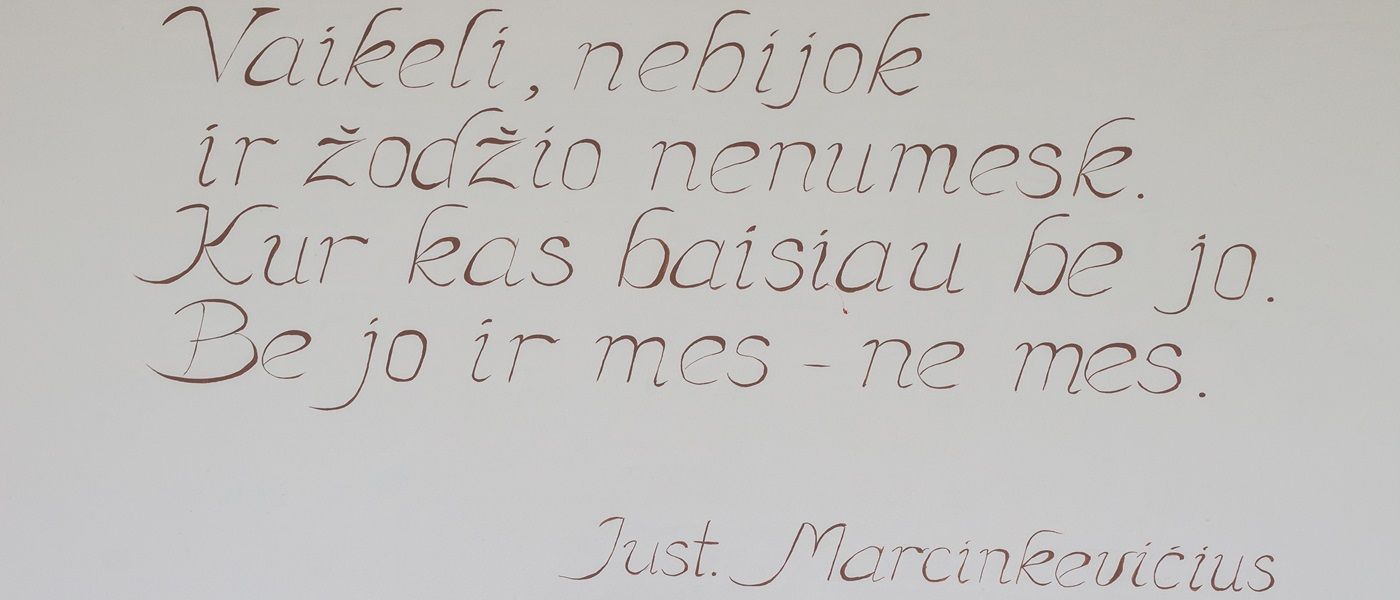 Vaikeli, nebijok
ir žodžio nenumesk.
Kur kas baisiau be jo.
Be jo ir mes - ne mes.
Just. Marcinkevičius